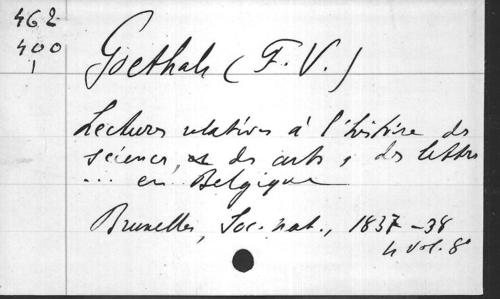 462
400
1
Goethals (F. V.)
Lectures relatives à l'histoire des
sciences, des arts, des lettres
... en Belgique
Bruxelles, Soc. nat., 1837-38
4 vol. 8°